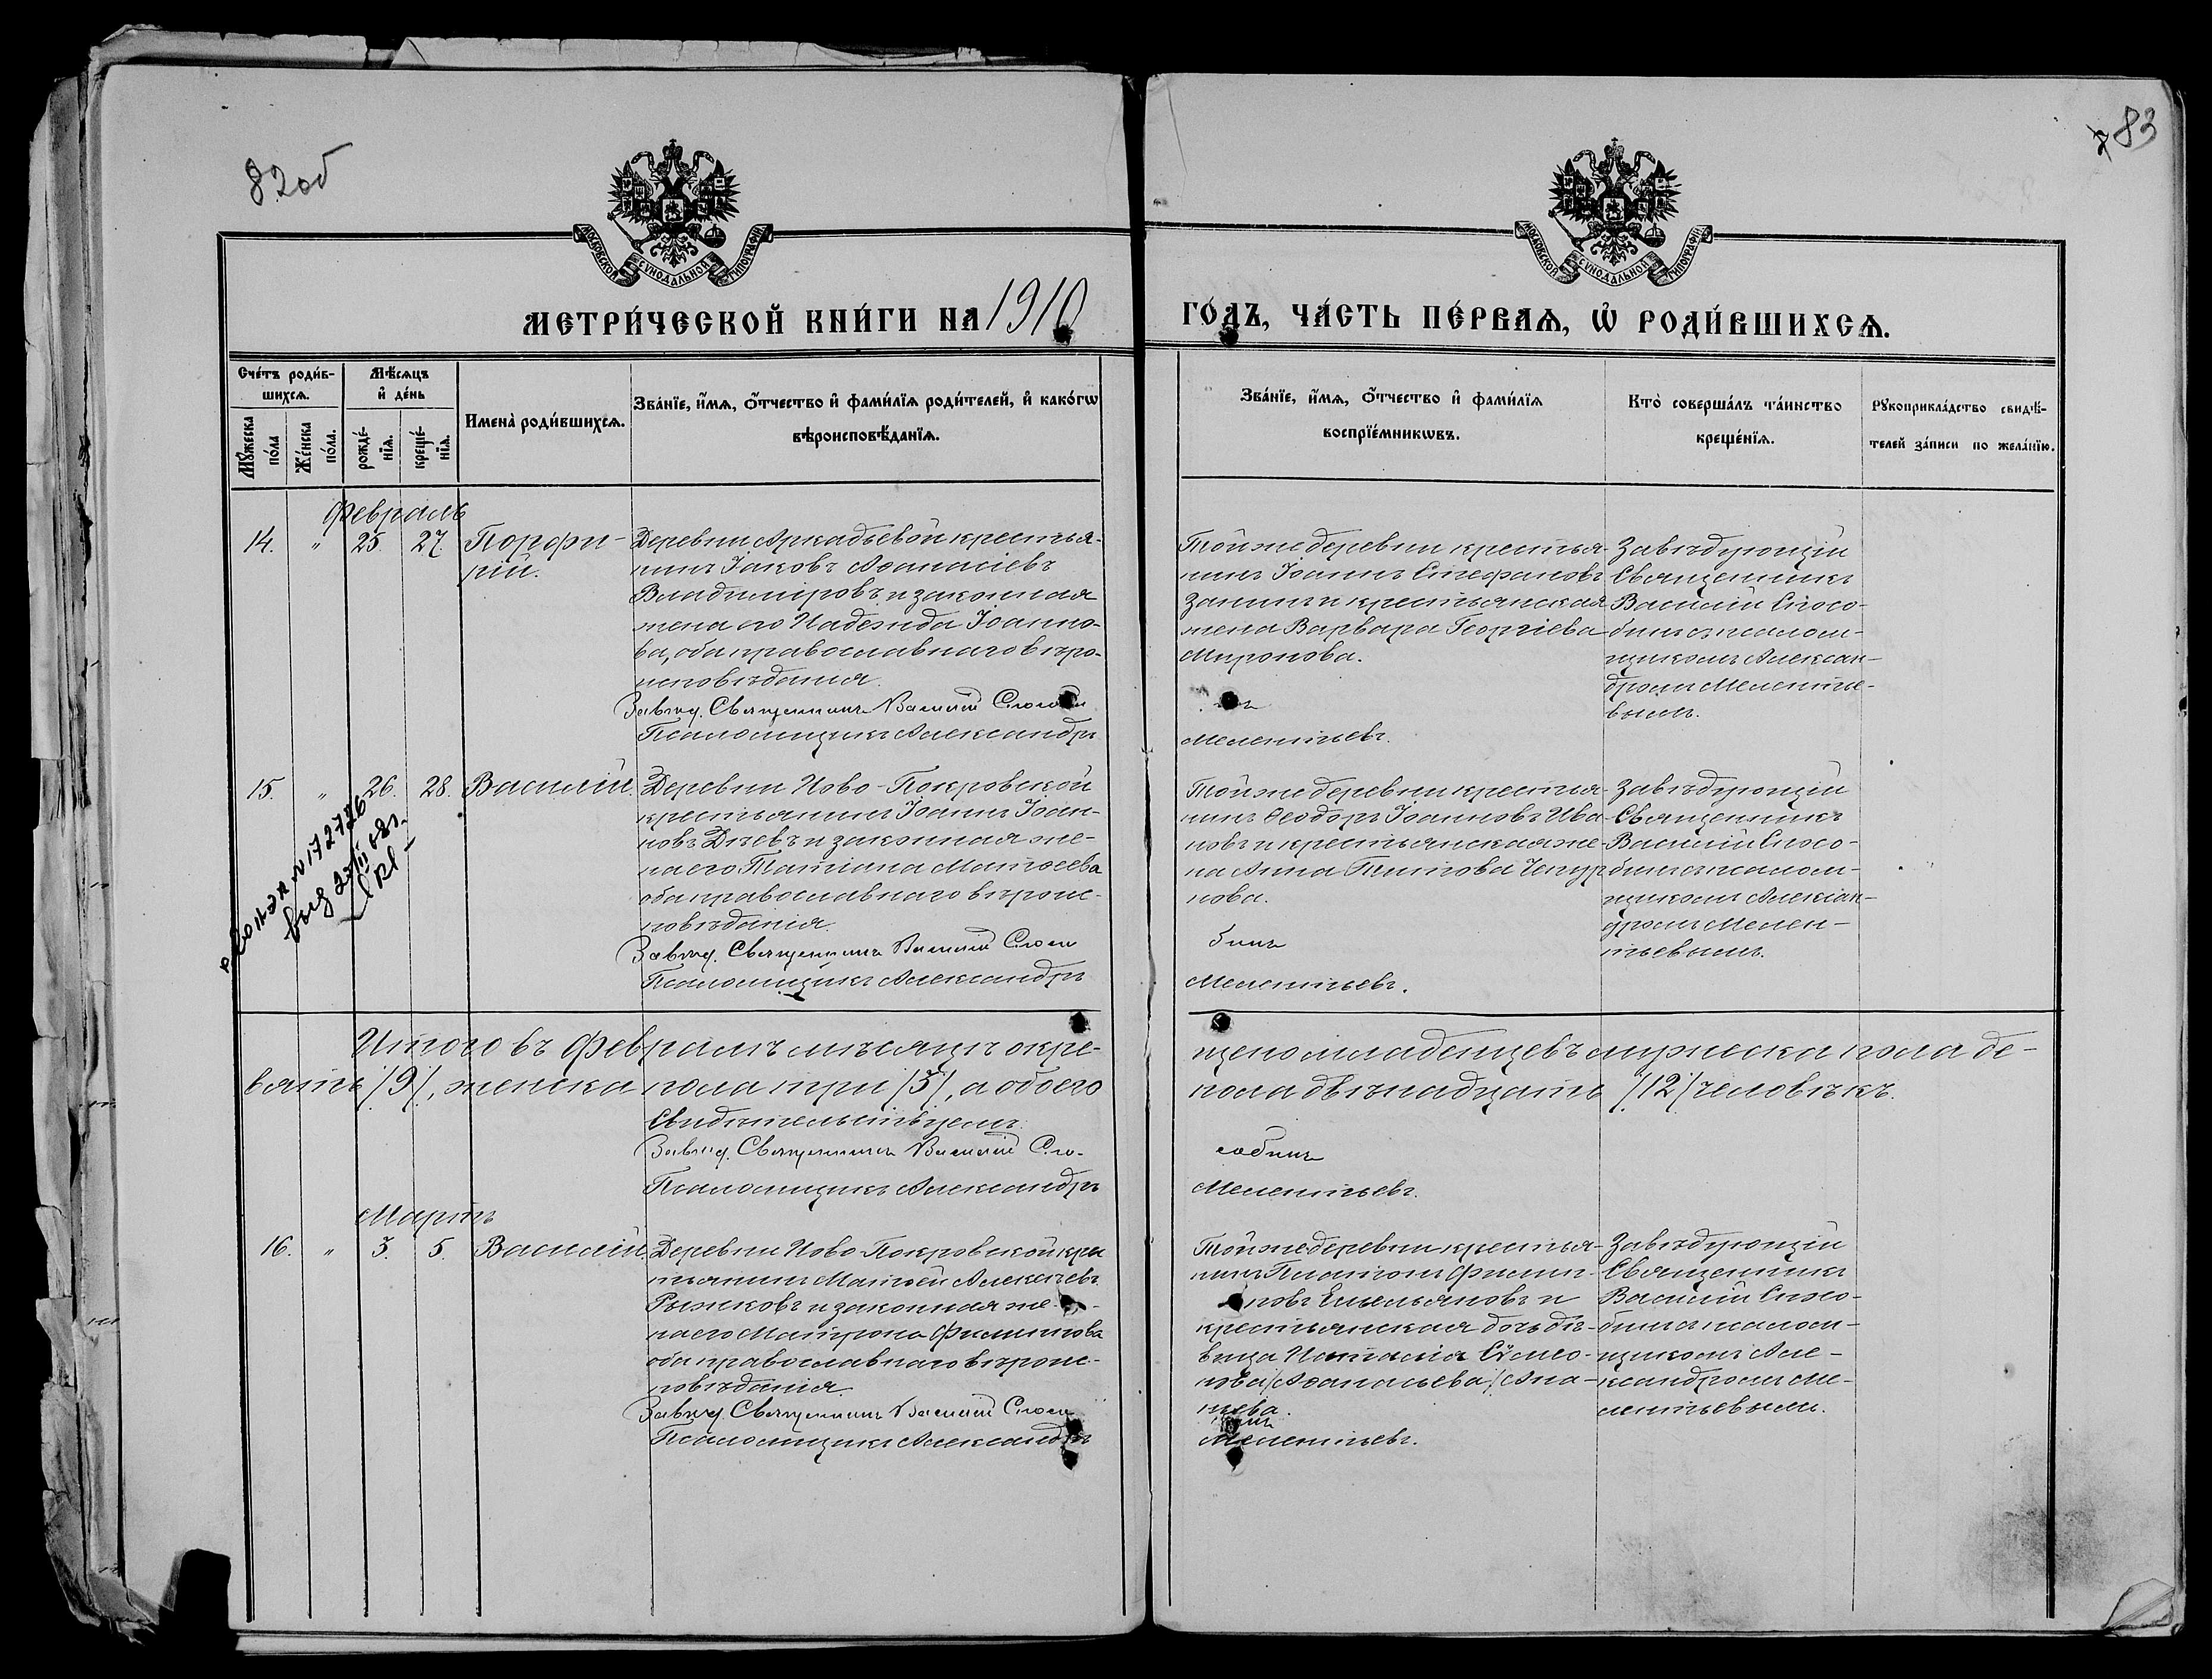 82об
83
МОСКОВСКОЙ СѴНОДАЛЬНОЙ ТИПОГРАФІИ
МОСКОВСКОЙ СѴНОДАЛЬНОЙ ТИПОГРАФІИ
МЕТРИ́ЧЕСКОЙ КНИ́ГИ НА 1910 ГО́ДЪ, ЧА́СТЬ ПЕ́РВАѦ, Ѡ҆ РОДИ́ВШИХСѦ.
Сче́тъ роди́в-
шихсѧ.
Мꙋ́жеска
по́ла
Же́нска
по́ла.
Мѣ́сѧцъ
и҆ де́нь
рожде́-
нїѧ.
креще́-
нїѧ.
Имена̀ роди́вшихсѧ.
Зва́нїе, и҆́мѧ, ѻ҆́тчество и҆ фами́лїѧ роди́телей, и҆ како́гѡ
вѣроисповѣ́данїѧ.
Зва́нїе, и҆́мѧ, ѻ҆́тчество и҆ фами́лїѧ
воспрїе́мникѡвъ.
Кто̀ соверша́лъ та́инство
креще́нїѧ.
Рꙋкоприкла́дство свидѣ́-
телей за́писи по жела́нїю.
Февраль
14. " 25. 27. Порфи-
рій.
Деревни Аркадьевой крестья-
нинъ Іаковъ Аѳанасіевъ
Владиміровъ и законная
жена его Надежда Іоанно-
ва, оба православнаго вѣро-
исповѣданія.
Завѣд. Священникъ Василій Слосо
Псаломщикъ Александръ
Той же деревни крестья-
нинъ Іоаннъ Стефановъ
Занинъ и крестьянская
жена Варвара Георгіева
Миронова.
Мелентьевъ.
Завѣдующій
Священникъ
Василій Слосо-
бинъ съ псалом-
щикомъ Алексан-
дромъ Мелентье-
вымъ.
15. " 26. 28. Василій.
Деревни Ново-Покровской
крестьянинъ Іоаннъ Іоан-
новъ Дѣевъ и законная же-
на его Татіана Матѳеева
оба православнаго вѣроис-
повѣданія.
Завѣд. Священникъ Василій Слосо
Псаломщикъ Александръ
Той же деревни крестья-
нинъ Ѳеодоръ Іоанновъ Ива-
новъ и крестьянская же-
на Анна Титова Чепур
нова.
бинъ
Мелентьевъ.
Завѣдующій
Священникъ
Василій Слосо-
бинъ съ псалом-
щикомъ Алексан-
дромъ Мелен-
тьевымъ.
№ 172726
выд 27/III 68г.
Итого въ Февралѣ мѣсяцѣ окре-
щено младенцевъ мужеска пола де-
вять /9/, женска пола три /3/, а обоего
пола двѣнадцать /12/ человѣкъ.
Свидѣтельствуемъ:
Завѣд. Священникъ Василій Сло-
собинъ
Псаломщикъ Александръ
Мелентьевъ.
Мартъ
16. " 3. 5. Василій.
Деревни Ново-Покровской крес
тьянинъ Матѳей Алексѣевъ
Рыжковъ и законная же-
на его Матрона Филиппова
оба православнаго вѣроис-
повѣданія.
Завѣд. Священникъ Василій Слосо
Псаломщикъ Александръ
Той же деревни крестья-
нинъ Платонъ Филип-
повъ Емельяновъ и
крестьянская дочь дѣ-
вица Наталія Сѵмео-
нова /Аѳанасьева/ Ана-
ньева.
Мелентьевъ.
Завѣдующій
Священникъ
Василій Слосо-
бинъ съ псалом-
щикомъ Але-
ксандромъ Ме-
лентьевымъ.